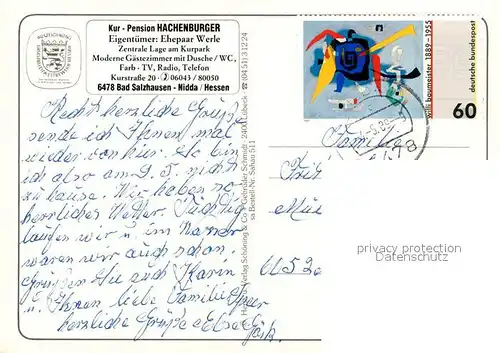 Kur - Pension HACHENBURGER
Eigentümer: Ehepaar Werle
Zentrale Lage am Kurpark
Moderne Gästezimmer mit Dusche / WC,
Farb - TV, Radio, Telefon
Kurstraße 20 · 06043 / 80050
6478 Bad Salzhausen - Nidda / Hessen
Recht herzliche Grüße
sende ich Ihnen mal
wieder von hier. So bin
ich also am 9. 5. nicht
zu Hause. Wir haben so
herrliches Wetter. Tüchtig
laufen wir u. im Wasser
waren wir auch schon.
Grüßen Sie auch Karin
u. Ihnen liebe Familie
herzliche Grüße
Verlag Schöning & Co + Gebrüder Schmidt · 2400 Lübeck ☎ (04 51) 3 12 24
Bestell-Nr. Sahau 611
willi baumeister 1889-1955
deutsche bundespost
60
Familie
6452
privacy protection
Datenschutz